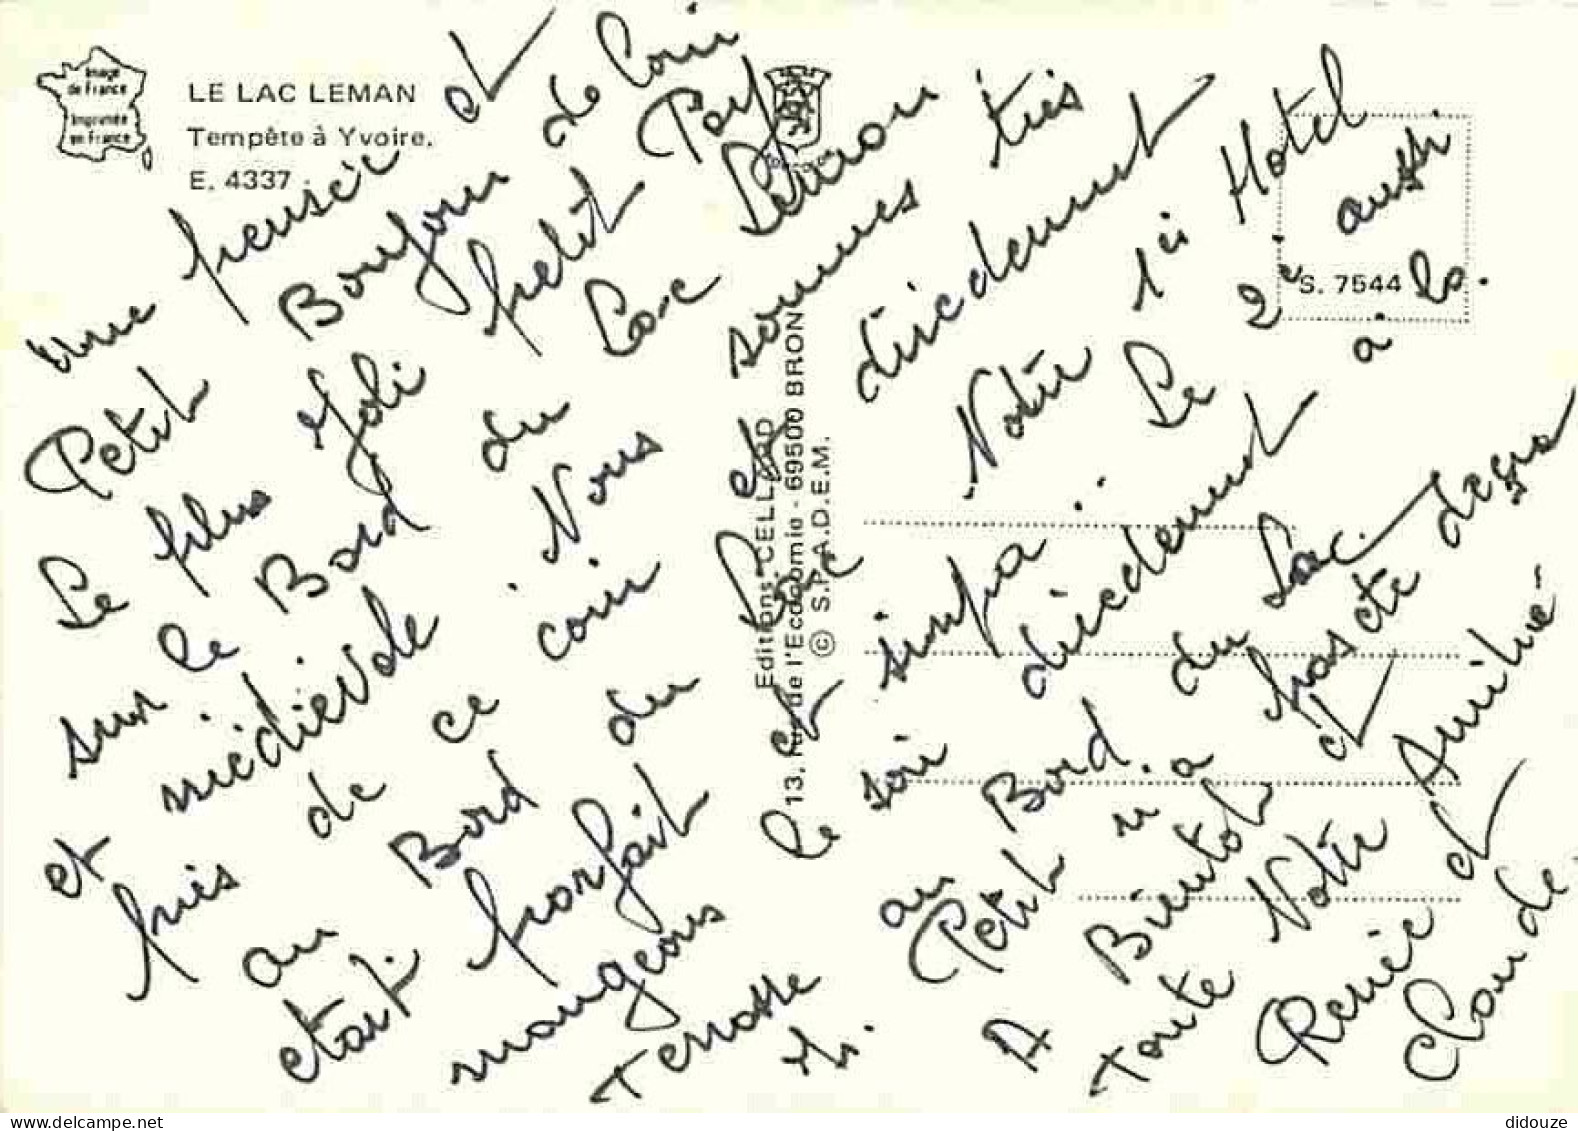 Image
de France
Imprimée
en France
LE LAC LEMAN
Tempête à Yvoire.
E. 4337
une pensée et
Petit Bonjour de Coin
Le plus Joli petit Pays
sur le Bord du Lac Leman
et médiévale. Nous sommes très
près de ce coin et directement
au Bord du Lac Notre 1er Hotel
étant parfait et simpa. Le 2e aussi
mangeons le soir directement a la
Terrasse au Bord du Lac.
Petit
A Bientot et
toute Notre Amitié
Renée et
Claude.
Editions CELLARD
13, Rue de l'Economie - 69500 BRON
© S.P.A.D.E.M.
S. 7544
didouze